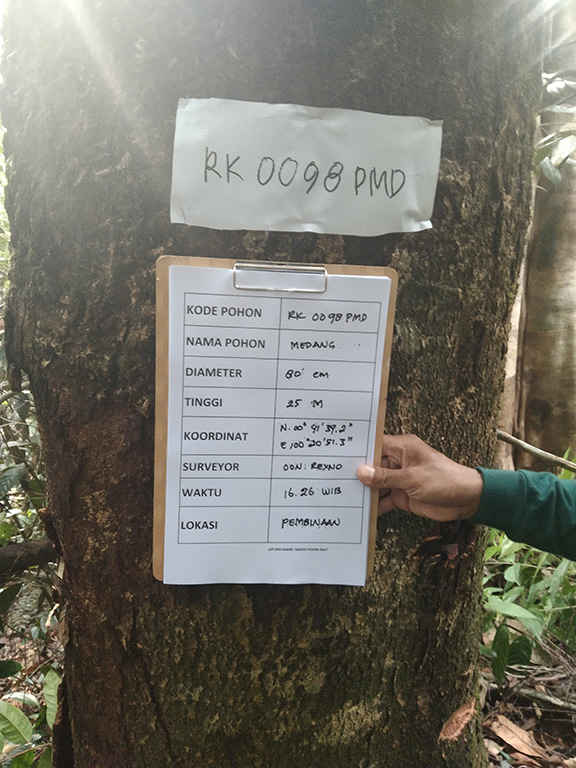 RK 0098 PMD
KODE POHON RK 0098 PMD
NAMA POHON MEDANG
DIAMETER 80 cm
TINGGI 25 M
KOORDINAT N. 00° 41' 39.2"
E 100° 20' 51.3"
SURVEYOR ODN; REXNO
WAKTU 16.26 WIB
LOKASI PEMBINAAN